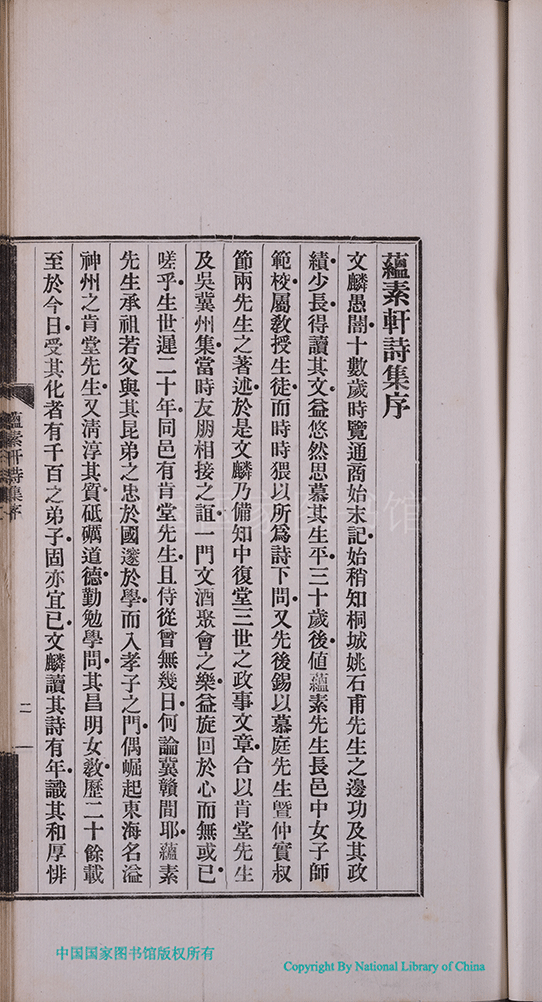 蘊素軒詩集序
文麟愚闇十數歲時覽通商始末記始稍知桐城姚石甫先生之邊功及其政
績少長得讀其文益悠然思慕其生平三十歲後値蘊素先生長邑中女子師
範校屬敎授生徒而時時猥以所爲詩下問又先後錫以慕庭先生曁仲實叔
節兩先生之著述於是文麟乃備知中復堂三世之政事文章合以肯堂先生
及吳冀州集當時友朋相接之誼一門文酒聚會之樂益旋回於心而無或已
嗟乎生世遲二十年同邑有肯堂先生且侍從曾無幾日何論冀贛間耶蘊素
先生承祖若父與其昆弟之忠於國邃於學而入孝子之門偶崛起東海名溢
神州之肯堂先生又淸淳其質砥礪道德勤勉學問其昌明女敎歷二十餘載
至於今日受其化者有千百之弟子固亦宜已文麟讀其詩有年讖其和厚悱
蘊素軒詩集序
二
中国国家图书馆
中国国家图书馆版权所有
Copyright By National Library of China